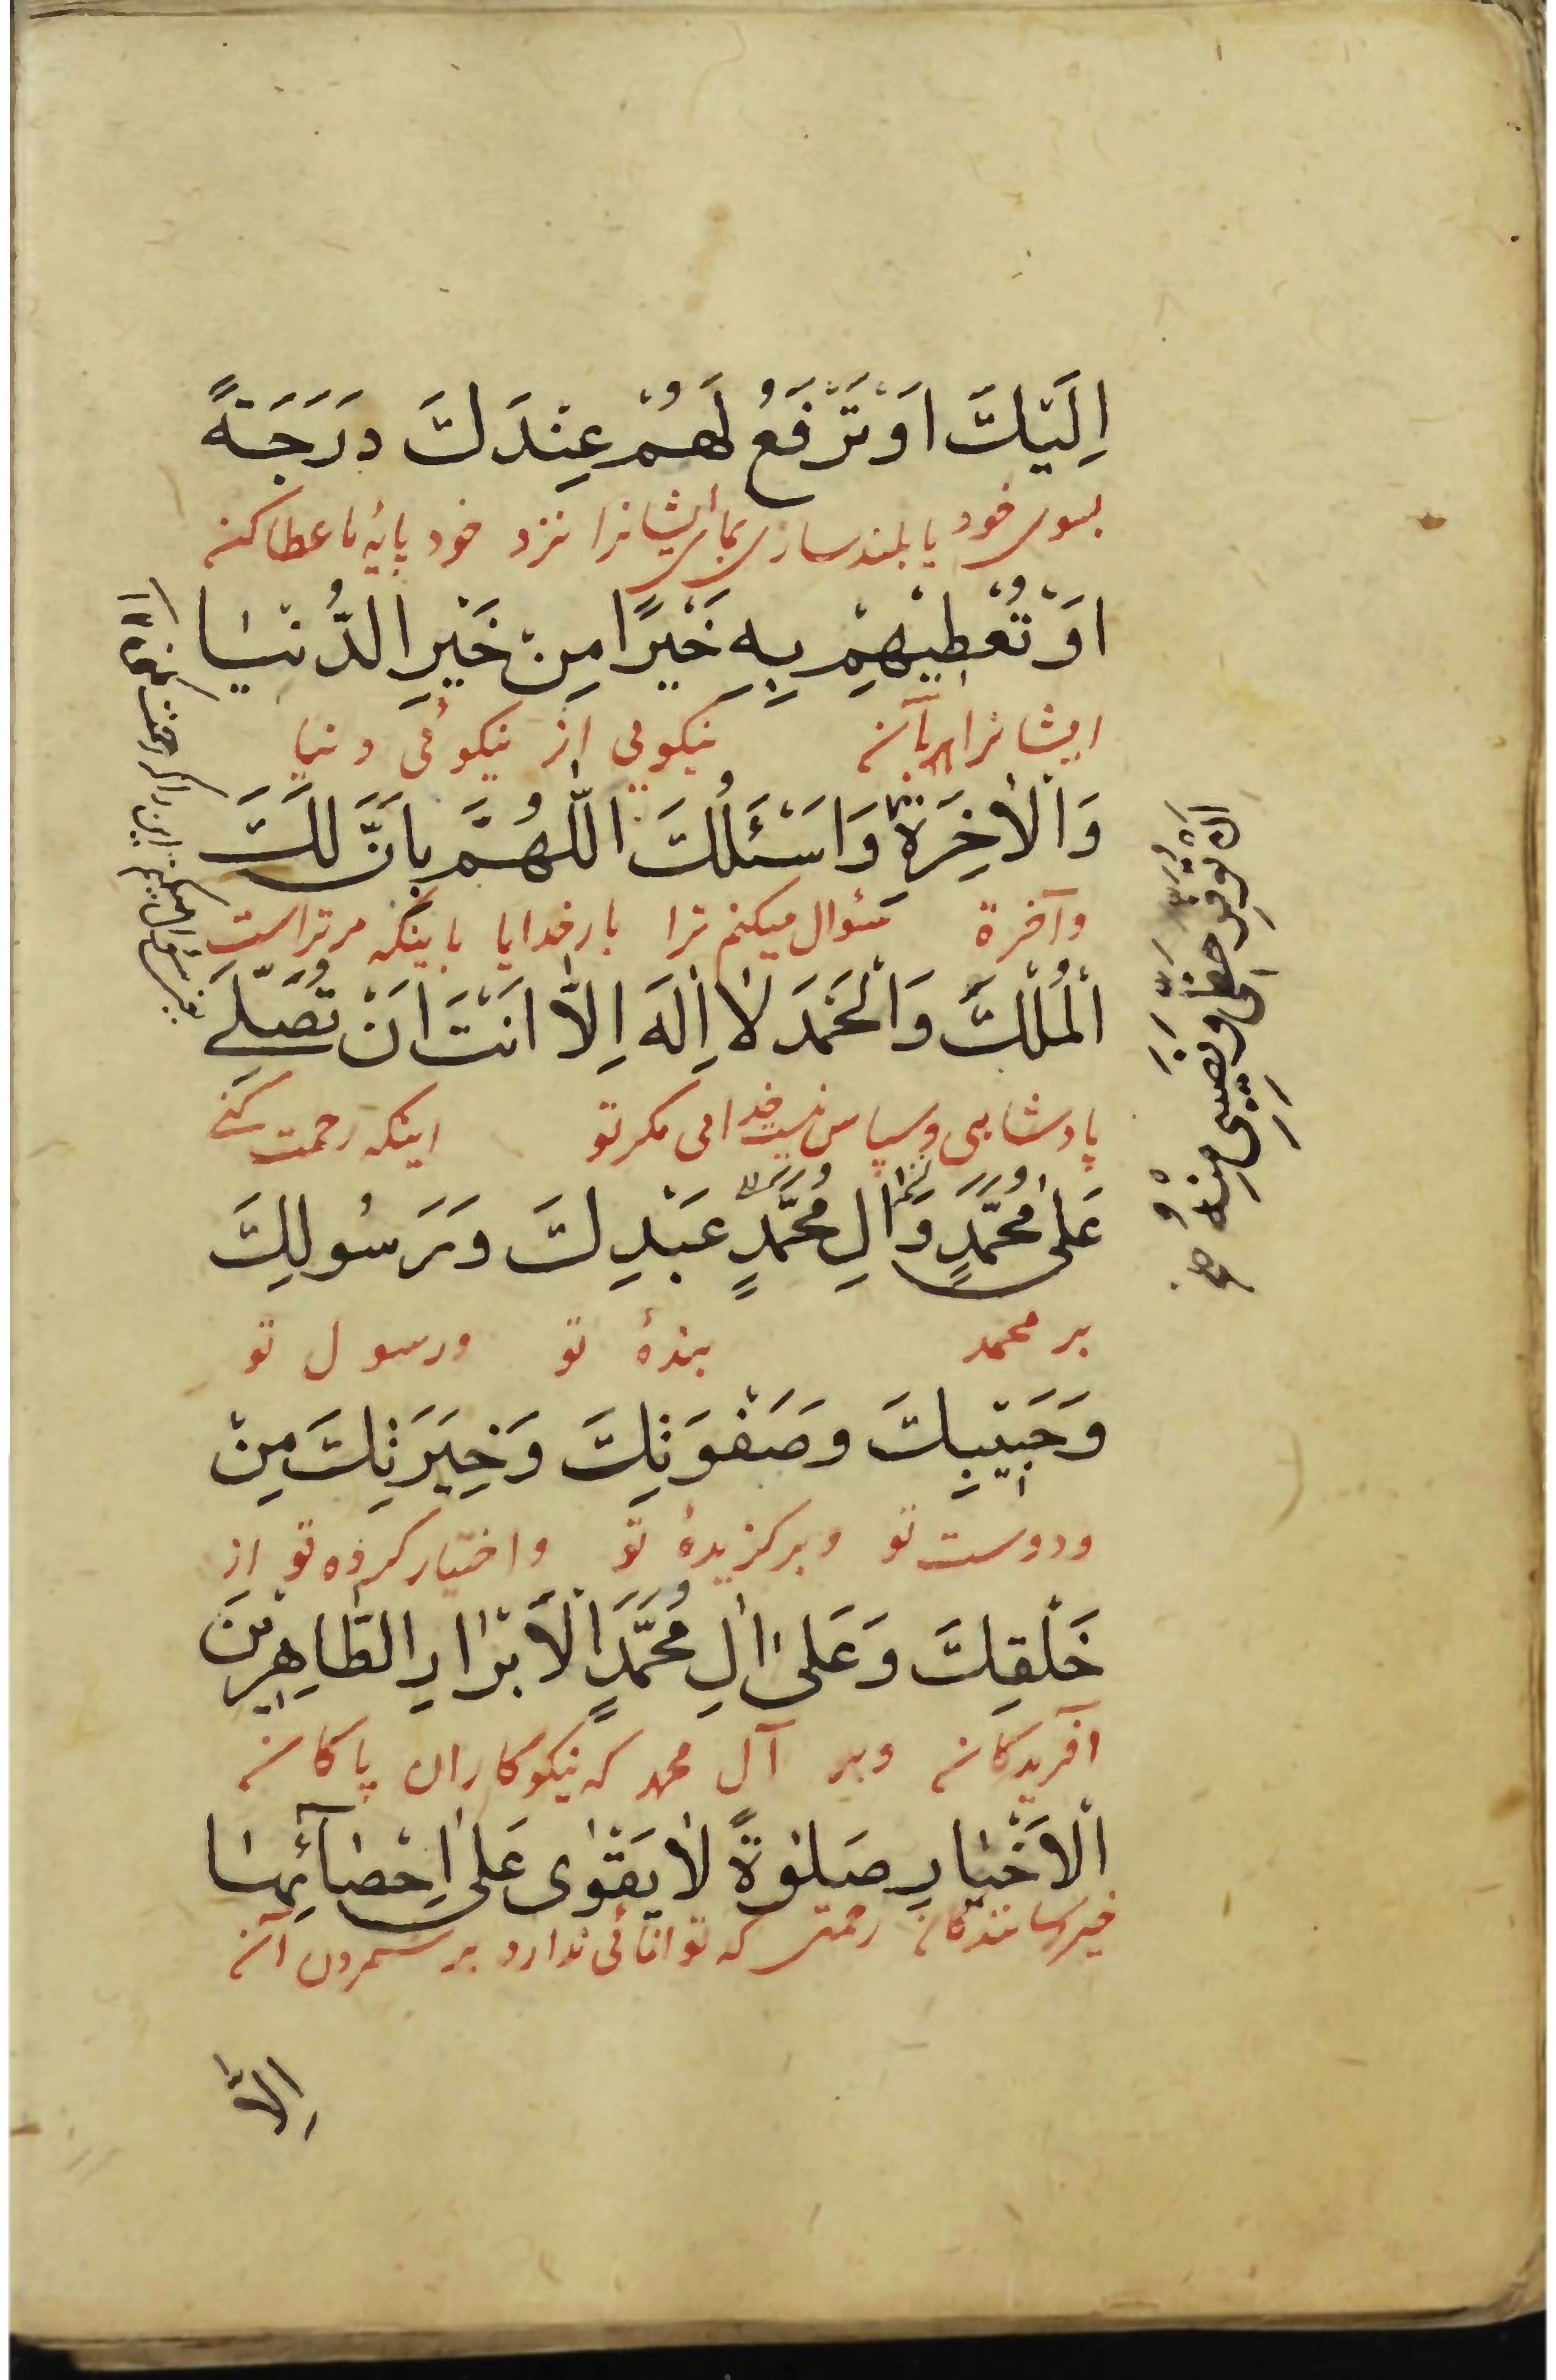 اِلَيْكَ اَوْ تَرْفَعُ لَهُمْ عِنْدَكَ دَرَجَةً
بسوی خود یا بلند سازی برای ایشانرا نزد خود پایهٔ یا عطا کنی
اَوْ تُعْطِيهِمْ بِهِ خَيْرًا مِنْ خَيْرِ الدُّنْيَا
ایشانرا بآن نیکویی از نیکوئی دنیا
وَالْاٰخِرَةِ وَاَسْئَلُكَ اللّٰهُمَّ بِاَنَّ لَكَ
وآخرة سئوال میکنم ترا بار خدایا باینکه مر تراست
الْمُلْكَ وَالْحَمْدَ لٰا اِلٰهَ اِلّٰا اَنْتَ اَنْ تُصَلِّيَ
پادشاهی وسپاس نیست خدایی مکر تو اینکه رحمت کنی
عَلىٰ مُحَمَّدٍ وَاٰلِ مُحَمَّدٍ عَبْدِكَ وَرَسُولِكَ
بر محمد بندهٔ تو ورسول تو
وَحَبِيْبِكَ وَصَفْوَتِكَ وَخِيَرَتِكَ مِنْ
ودوست تو وبرکزیدهٔ تو واختیار کرده تو از
خَلْقِكَ وَعَلىٰ اٰلِ مُحَمَّدٍ الْاَبْرٰارِ الطّٰاهِرِيْنَ
آفریدکان وبر آل محمد که نیکوکاران پاکان
الْاَخْيٰارِ صَلٰوةً لٰا يَقْوٰى عَلىٰ اِحْصٰآئِهٰا
خیر رسانندکان رحمتی که توانائی ندارد بر شمردن آن
اِلّٰا
اَنْ تُوَفِّرَ حَظِّي وَنَصِيبِي مِنْهُ